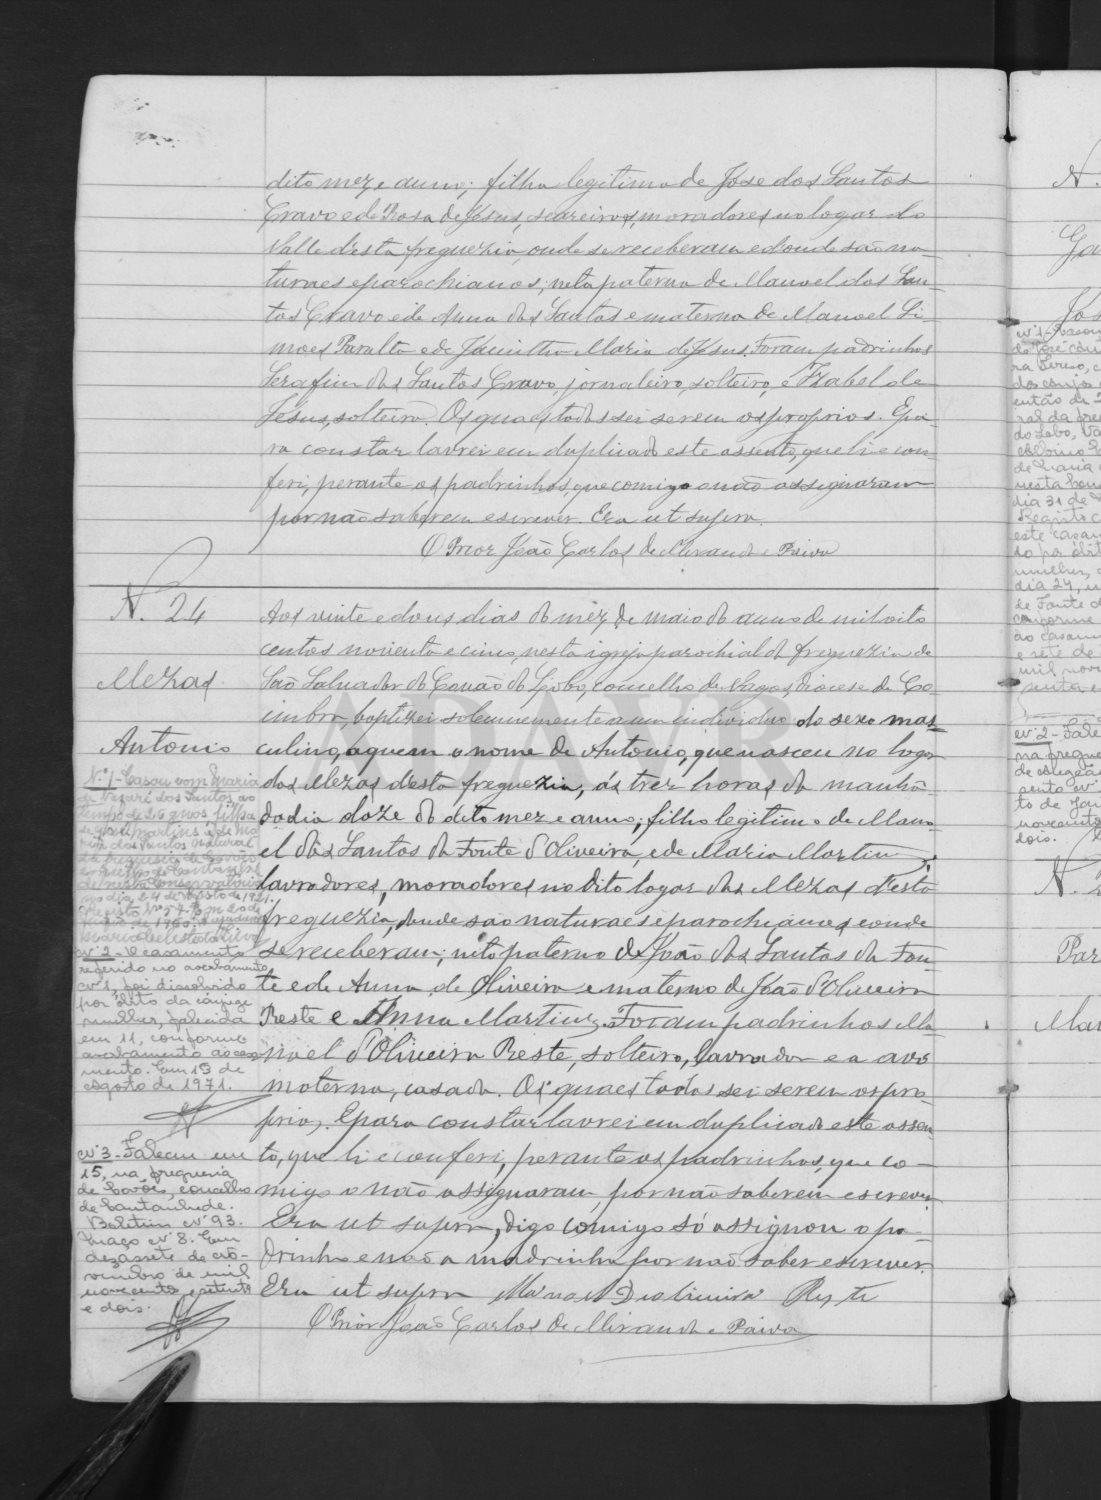 dito mez e anno; filha legitima de Jose dos Santos
Cravo e de Rosa de Jesus, seareiros, moradores no logar do
Valle desta freguezia, onde se receberam e donde são na-
turaes e parochianos; neta paterna de Manoel dos San-
tos Cravo e de Anna dos Santos e materna de Manoel Si-
mões Paralta e de Jacintha Maria de Jesus. Foram padrinhos
Serafim dos Santos Cravo, jornaleiro, solteiro, e Izabel de
Jesus, solteira. Os quaes todos sei serem os proprios. E pa-
ra constar lavrei em duplicado este assento, que li e con-
feri, perante os padrinhos, que comigo o não assignaram
por não saberem escrever. Era ut supra.
O Prior João Carlos de Miranda e Paiva
N. 24
Mezas
Antonio
Aos vinte e dous dias do mez de maio do anno de mil oito
centos noventa e cinco, nesta igreja parochial da freguezia de
São Salvador do Covão do Lobo, concelho de Vagos, diocese de Co-
imbra, baptizei solemnemente a um individuo do sexo mas-
culino, a quem o nome de Antonio, que nasceu no logar
das Mezas desta freguezia, ás trez horas da manhã
do dia doze do dito mez e anno; filho legitimo de Mano-
el dos Santos da Fonte d'Oliveira, e de Maria Martins,
lavradores, moradores no dito logar das Mezas desta
freguezia, donde são naturaes e parochianos e onde
se receberam; neto paterno de João dos Santos da Fon-
te e de Anna de Oliveira e materno de João d'Oliveira
Reste e Anna Martins. Foram padrinhos Ma-
noel d'Oliveira Reste, solteiro, lavrador e a avó
materna, casada. Os quaes todos sei serem os pro-
prios. E para constar lavrei em duplicado este assen-
to, que li e conferi, perante os padrinhos, que co-
migo o não assignaram, por não saberem escrever.
Era ut supra, digo comigo só assignou o pa-
drinho e não a madrinha por não saber escrever.
Era ut supra Manoel Deoliveira Reste
O Prior João Carlos de Miranda e Paiva
Nº 1 - Casou com Maria
de Nazaré dos Santos, ao
tempo de 26 anos, filha
de Martins e de Ma-
ria dos Santos natural
da freguesia de Covões
concelho de Cantanhede
no dia 24 de de 1921.
Nº 2 - O casamento
referido no averbamento
nº 1, foi dissolvido
por óbito da cônjuge
mulher, falecida
em 11, conforme
averbamento ao casa-
mento. Em 19 de
agosto de 1971.
Nº 3 - Faleceu em
15, na freguesia
de Covões, concelho
de Cantanhede.
Boletim nº 93.
Maço nº 8. Em
dezassete de no-
vembro de mil
novecentos e setenta
e dois.
N.
Nº 2 - Fale
na fregue
novecentos
dois.
N. 2
Par
Man